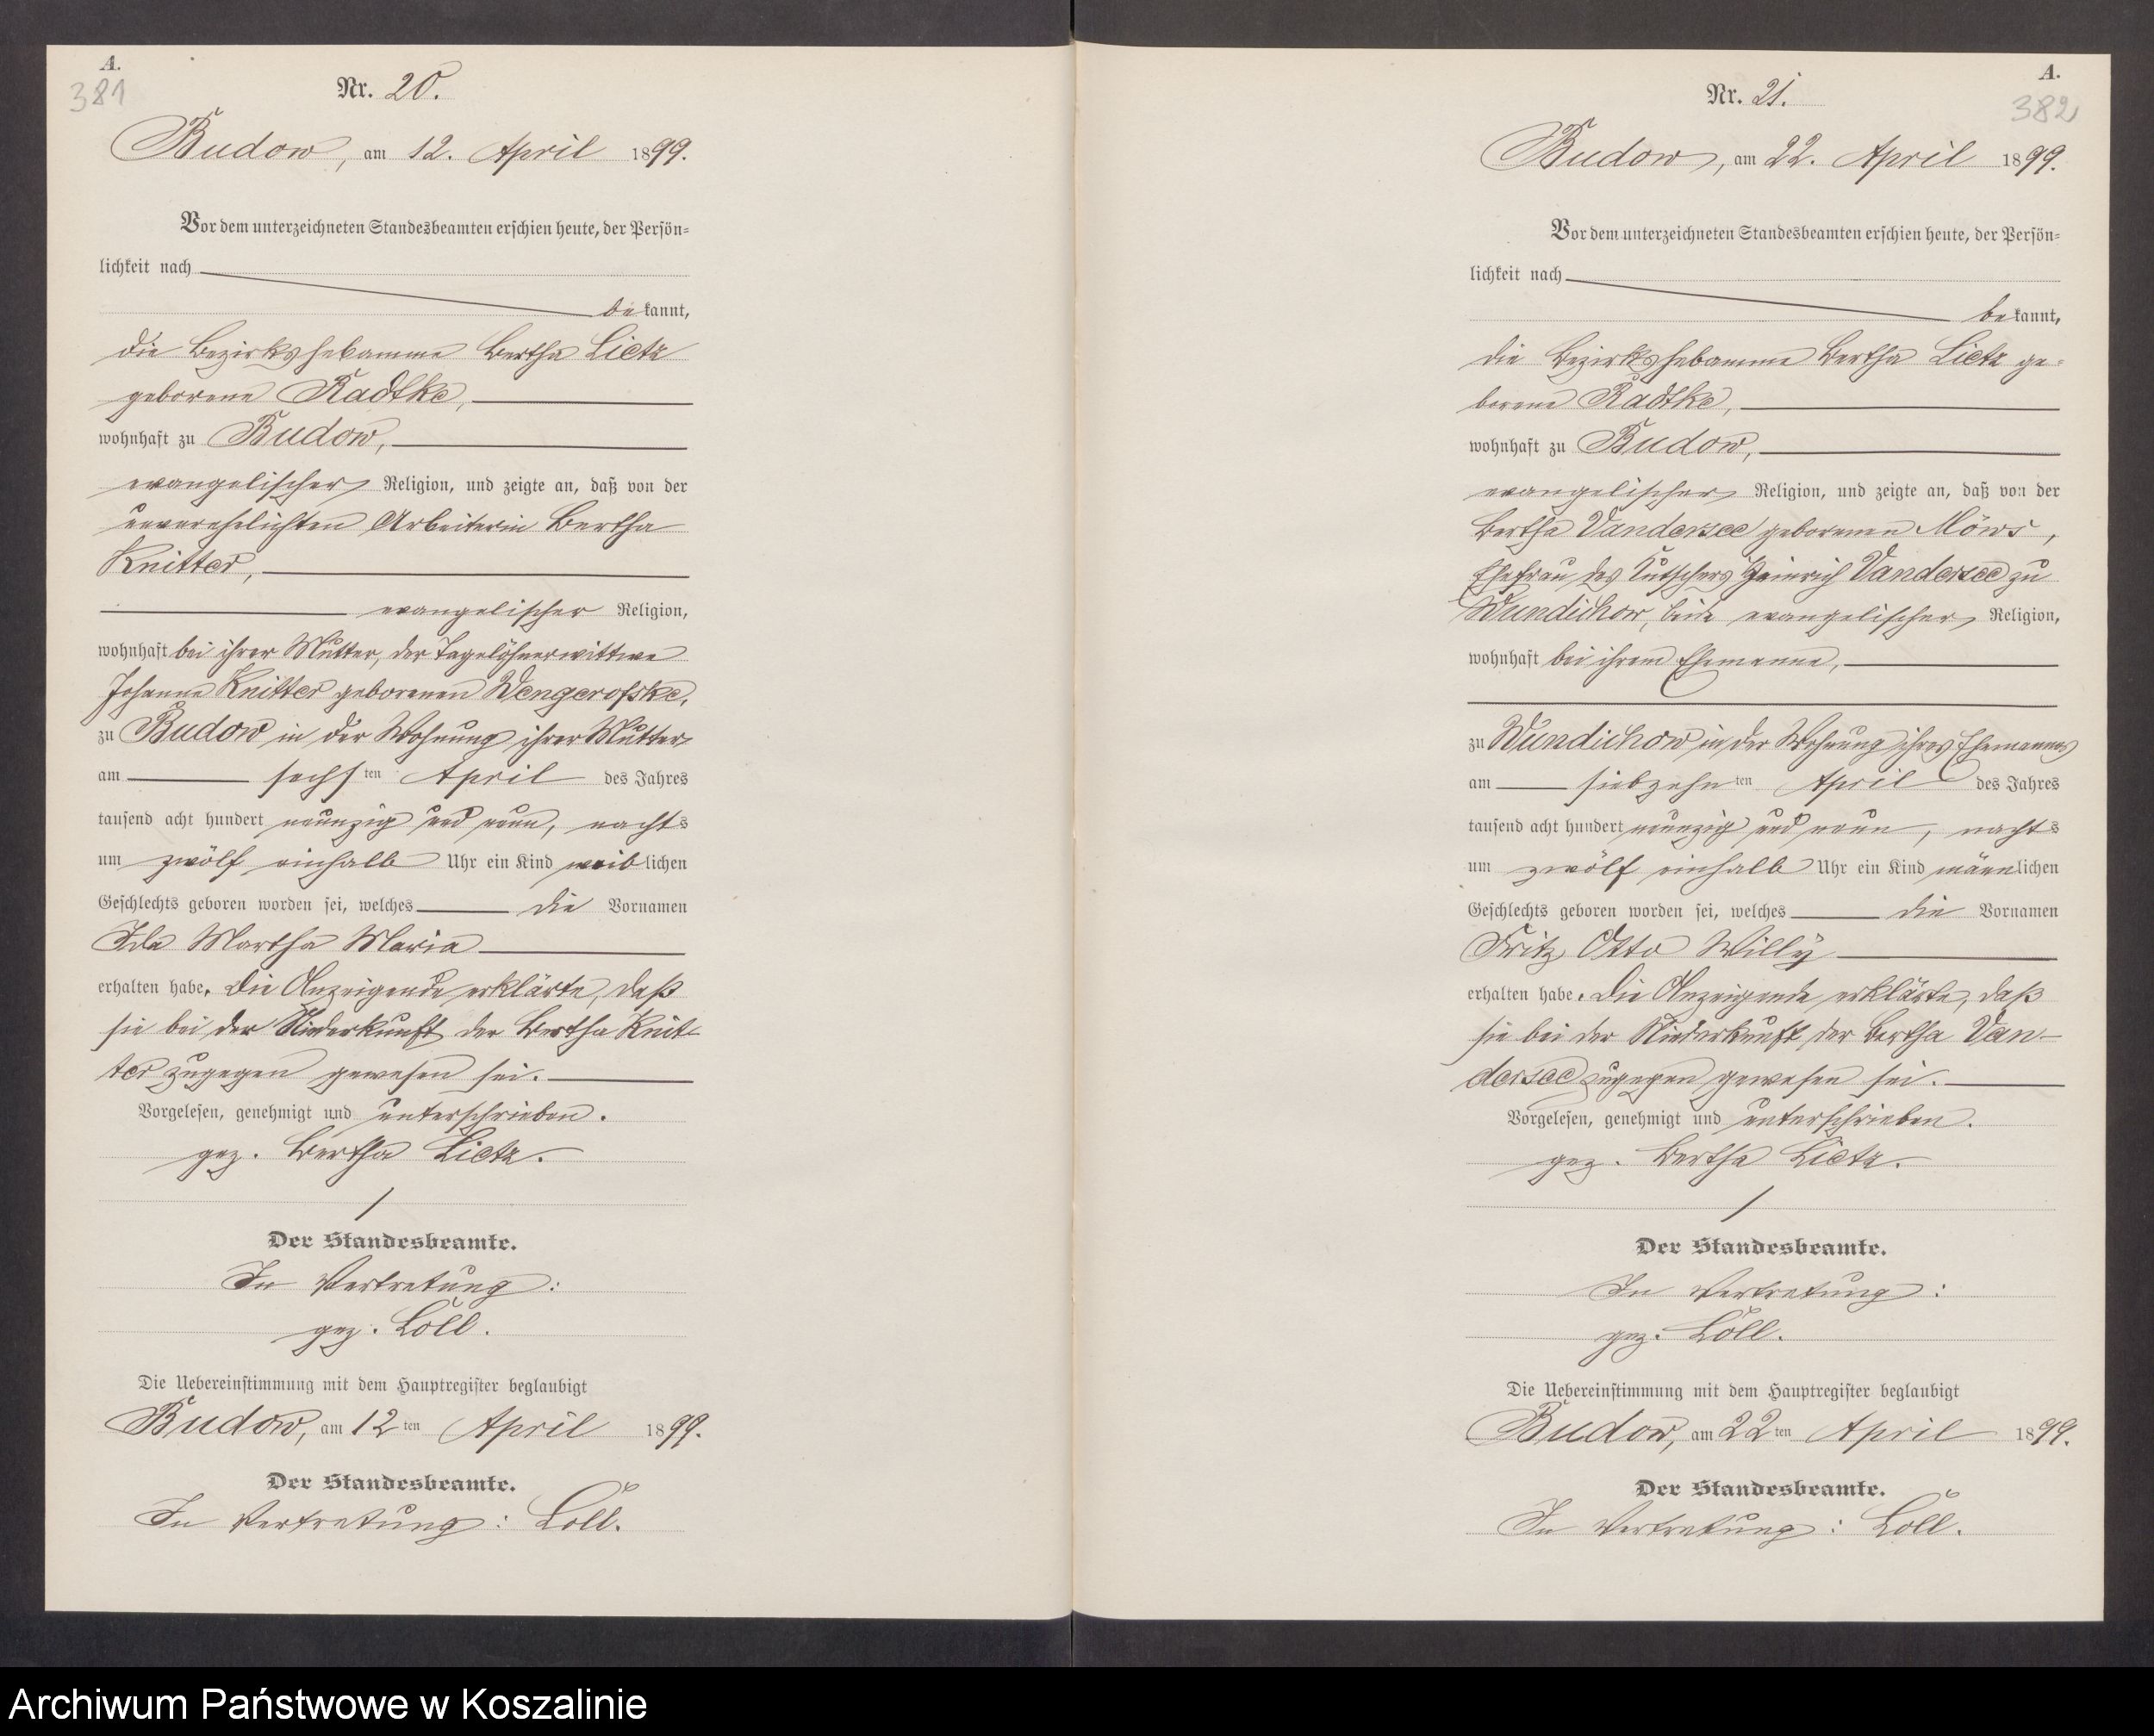 A.
381
Nr. 20.
Budow, am 12. April 1899.
Vor dem unterzeichneten Standesbeamten erschien heute, der Persön-
lichkeit nach
be kannt,
die Bezirkshebamme Bertha Lietz
geborene Radtke,
wohnhaft zu Budow,
evangelischer Religion, und zeigte an, daß von der
unverehelichten Arbeiterin Bertha
Knitter,
evangelischer Religion,
wohnhaft bei ihrer Mutter, der Tagelöhnerwittwe
Johanne Knitter geborenen Wengerofske,
zu Budow in der Wohnung ihrer Mutter
am sechs ten April des Jahres
tausend acht hundert neunzig und neun, nachts
um zwölf einhalb Uhr ein Kind weiblichen
Geschlechts geboren worden sei, welches die Vornamen
Ida Martha Maria
erhalten habe. Die Anzeigende erklärte, daß
sie bei der Niederkunft der Bertha Knit-
ter zugegen gewesen sei.
Vorgelesen, genehmigt und unterschrieben.
gez. Bertha Lietz.
Der Standesbeamte.
In Vertretung:
gez. Löll.
Die Uebereinstimmung mit dem Hauptregister beglaubigt
Budow, am 12 ten April 1899.
Der Standesbeamte.
In Vertretung: Löll.
A.
382
Nr. 21.
Budow, am 22. April 1899.
Vor dem unterzeichneten Standesbeamten erschien heute, der Persön-
lichkeit nach
be kannt,
die Bezirkshebamme Bertha Lietz ge-
borene Radtke,
wohnhaft zu Budow,
evangelischer Religion, und zeigte an, daß von der
Bertha Vandersee geborenen Möws,
Ehefrau des Kutschers Heinrich Vandersee zu
Wundichow, beide evangelischer Religion,
wohnhaft bei ihrem Ehemanne,
zu Wundichow in der Wohnung ihres Ehemannes
am siebzehn ten April des Jahres
tausend acht hundert neunzig und neun, nachts
um zwölf einhalb Uhr ein Kind männlichen
Geschlechts geboren worden sei, welches die Vornamen
Fritz Otto Willy
erhalten habe. Die Anzeigende erklärte, daß
sie bei der Niederkunft der Bertha Van-
dersee zugegen gewesen sei.
Vorgelesen, genehmigt und unterschrieben.
gez. Bertha Lietz.
Der Standesbeamte.
In Vertretung:
gez. Löll.
Die Uebereinstimmung mit dem Hauptregister beglaubigt
Budow, am 22 ten April 1899.
Der Standesbeamte.
In Vertretung: Löll.
Archiwum Państwowe w Koszalinie